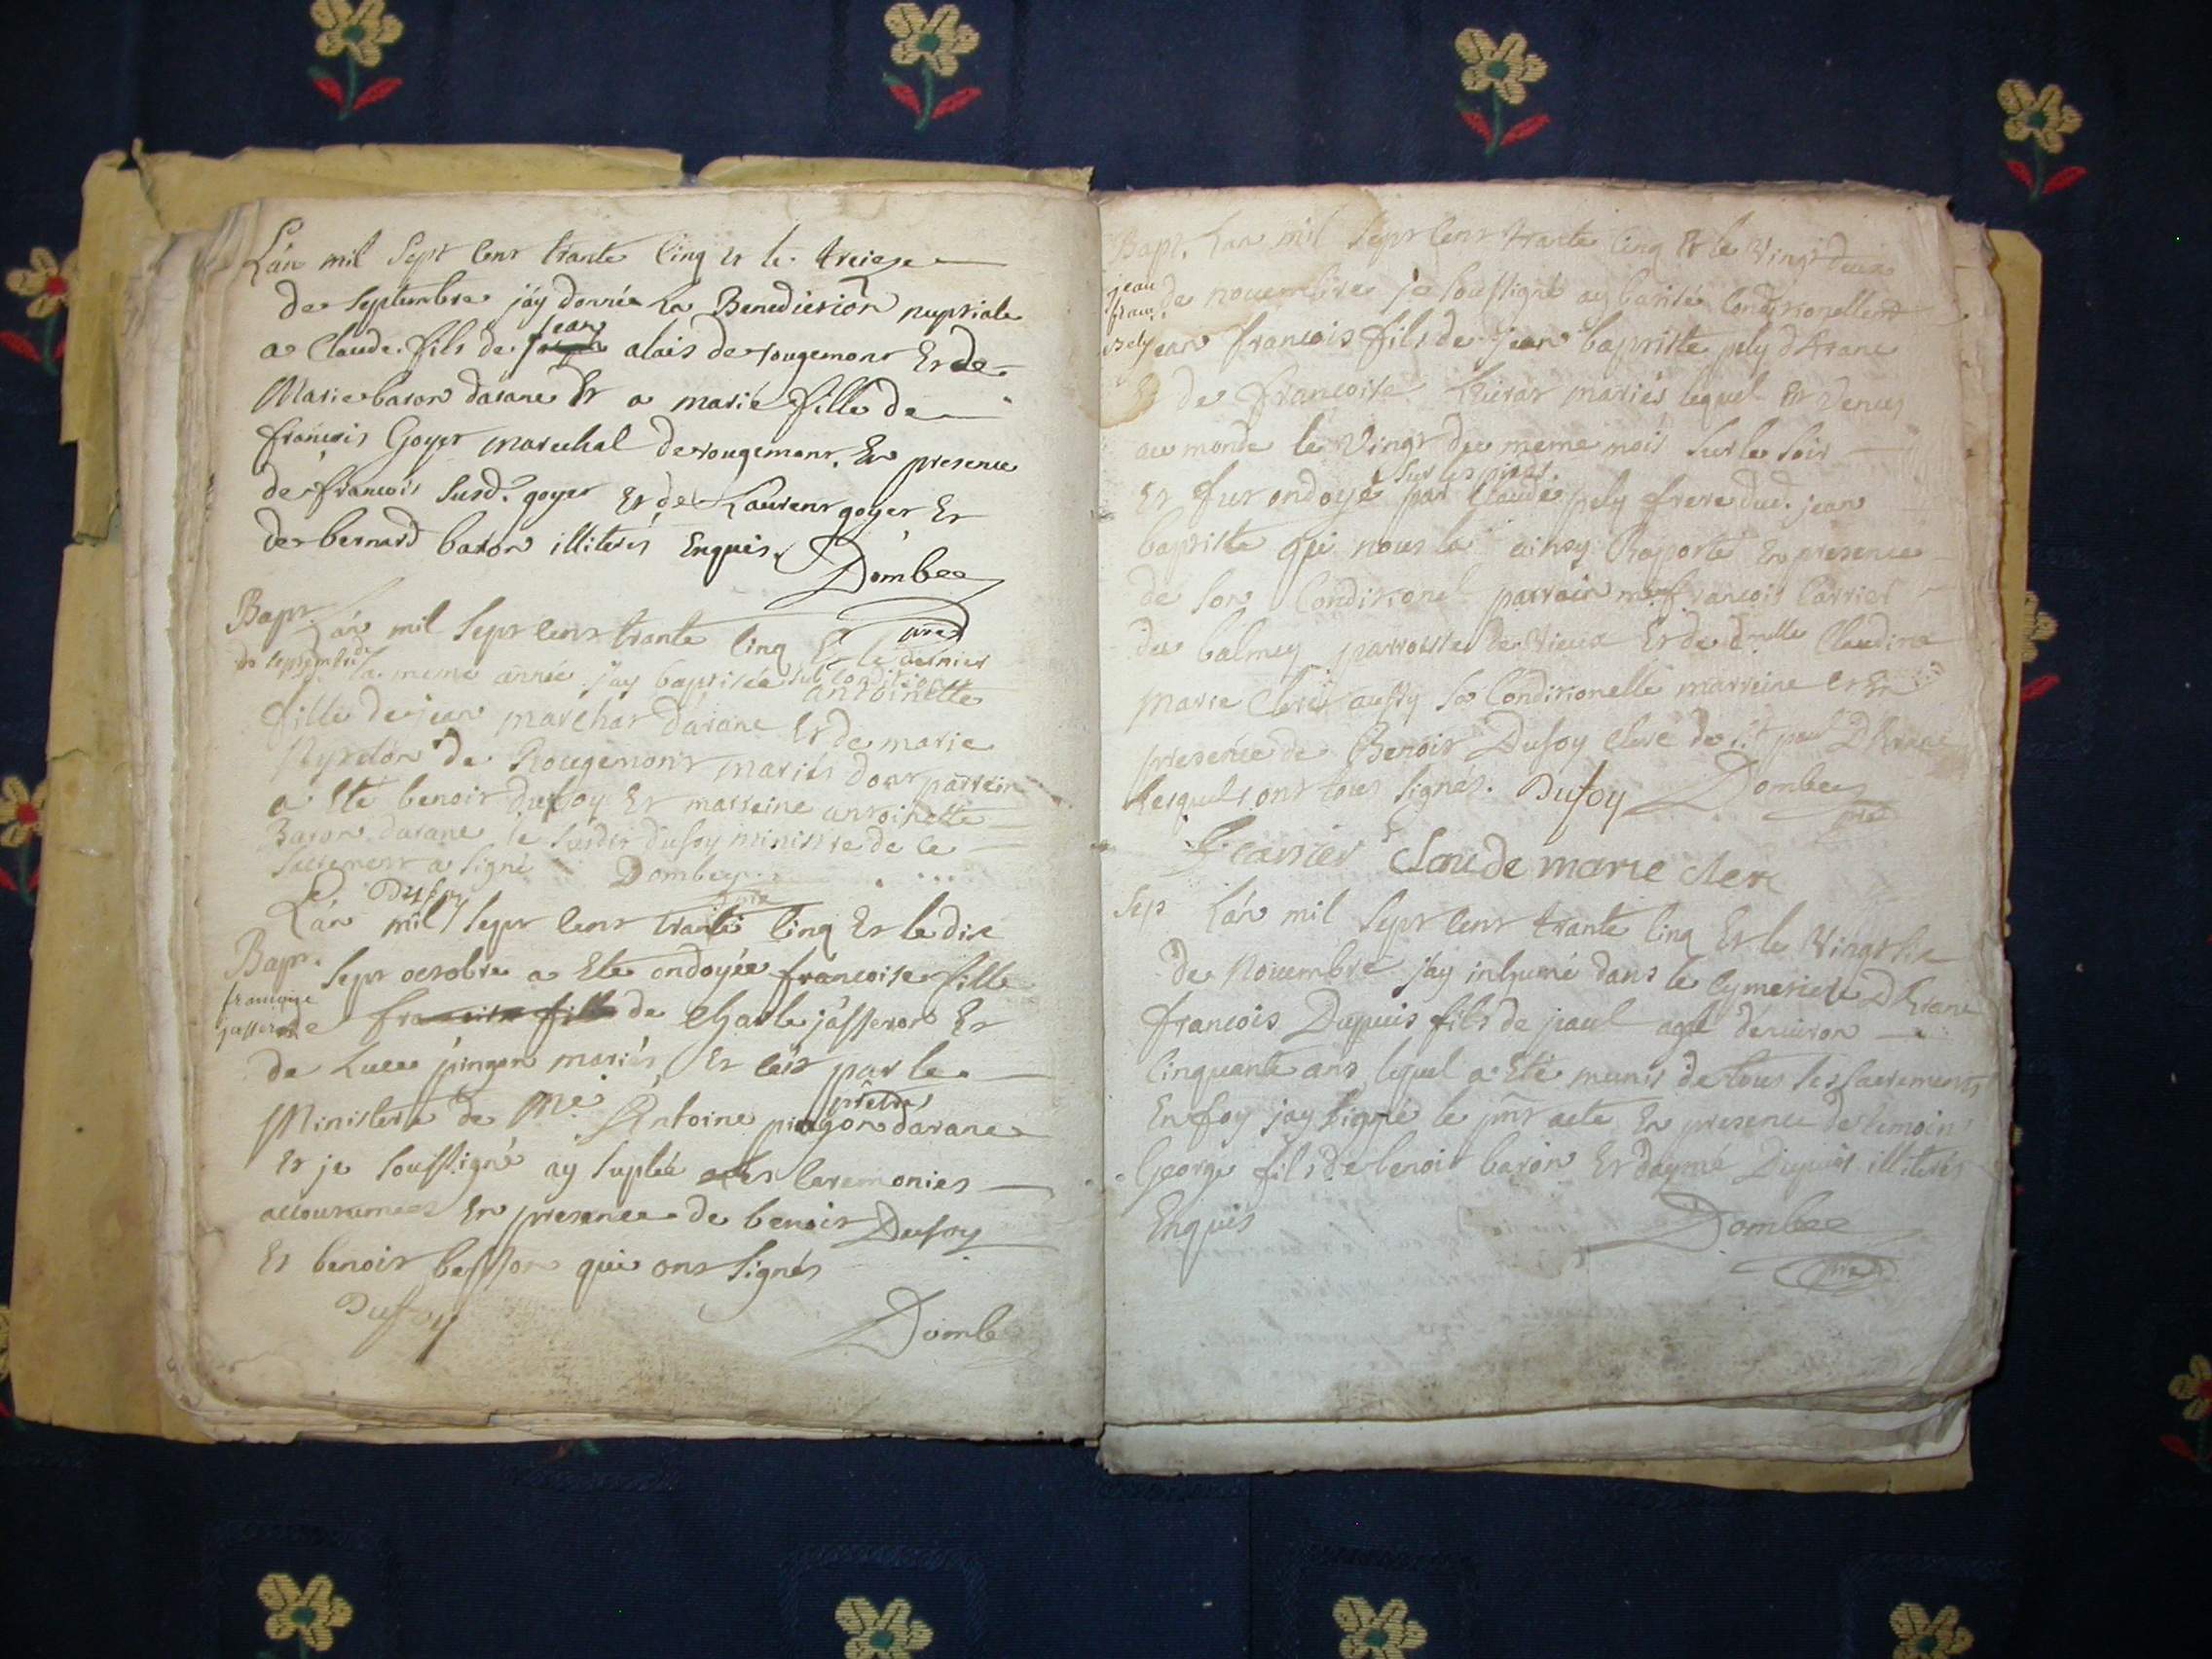 L'an mil Sept Cent trante Cinq et le treize
de Septembre j'ay donnée La Benediction nuptiale
a Claude fils de Jean alais de rougemont Et de
Marie baron d'arane Et a marie fille de
francois Goyet marechal de rougemont. En presence
de francois Susd. goyet Et de Laurent goyet Et
de bernard baron illiterés Enquis. Dombee
pre
Bapt. L'an mil Sept Cent trante Cinq Et le dernier
de septembre de la meme année j'ay baptisée sub conditione antoinette
fille de jean marchat d'arane Et de marie
de Rougemont mariés dont parrein
a Eté benoit dufoy Et marreine antoinette
Baron d'arane le susdit dufoy ministre de ce
Sacrement a Signé Dombey
Dufoy
L'an mil Sept Cent trante Cinq Et le dix
Bapt. Sept octobre a Eté ondoyée francoise fille
francoise
jasseron
de Charle jasseron Et
de Luce pingon mariés, Et ce par le
Ministere de Me Antoine pingon prêtre d'arane
Et je Soussigné ay suplée les Ceremonies
accoutumées En presence de benoit Dufoy
Et benoit besson qui ont Signés
Dufoy
Dombe
Bapt. L'an mil Sept Cent trante Cinq Et le Vingt deux
jean
franc.
Bely
de novembre je Soussigné ay batisé Conditionellemt
jean francois fils de jean baptiste pely d'Arane
Et de francoise mariés lequel Est Venus
au monde le Vingt du meme mois Sur le Soir
Et fut ondoyé Sur les pieds par Claude pely frere dud. jean
baptiste qui nous la ainsy Raporté En presence
de Son Conditionel parrain me francois Carrier
du balmey parroisse de Vieux Et de dmelle Claudine
Marie Clerc aussy Sa Conditionelle marreine et En
presence de Benoit Dufoy Clerc de paul D'Arane
Lesquels ont tous Signés. Dufoy Dombey
pre
f. carrier Claude marie clerc
Sep L'an mil Sept Cent trante Cinq Et le Vingt Six
de Novembre j'ay inhumé dans le Cymetiere D'Arane
francois Dupuis fils de paul agé d'environ
Cinquante ans lequel a Eté munis de tous les Sacrements
En foy j'ay Signé le pnt acte En presence de temoins
George fils de benoit baron Et daymé Dupuis illiterés
Enquis Dombee
pre